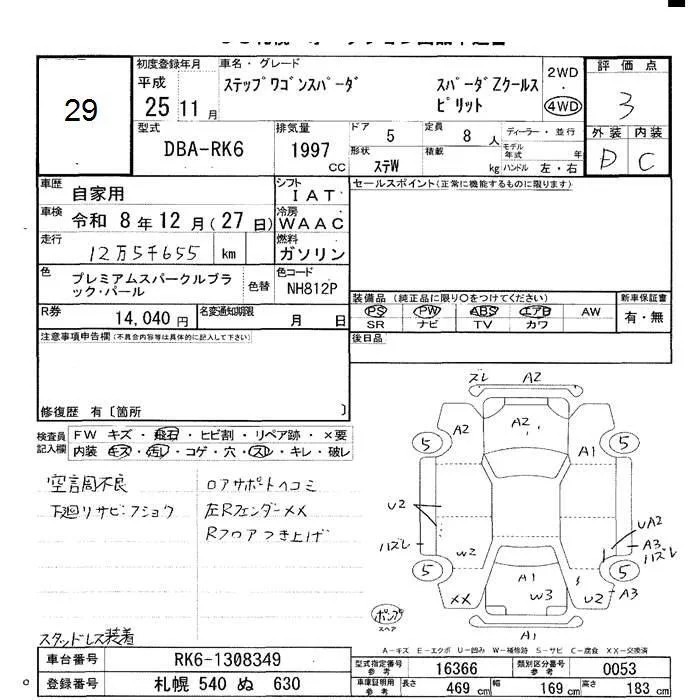 29
初度登録年月
平成
25 11 月
車名・グレード
ステップワゴンスパーダ スパーダZクールスピリット
2WD
4WD
評価点
3
外装 内装
D C
型式
DBA-RK6
排気量
1997 CC
ドア 5
定員 8 人
形状 ステW
積載 kg
ディーラー・並行
モデル年式 年
ハンドル 左・右
車歴 自家用
シフト IAT
車検 令和 8 年 12 月 (27 日)
冷房 WAAC
走行 12万5千655 km
燃料 ガソリン
色 プレミアムスパークルブラック・パール
色替
色コード NH812P
R券 14,040 円
名変通知期限 月 日
セールスポイント(正常に機能するものに限ります)
装備品 (純正品に限り○をつけてください)
新車保証書
PS PW ABS エアB AW
有・無
SR ナビ TV カワ
後日品
注意事項申告欄(不具合内容等は具体的に記入して下さい)
修復歴 有〔箇所 〕
検査員記入欄
FW キズ・飛石・ヒビ割・リペア跡・×要
内装 キズ・汚レ・コゲ・穴・スレ・キレ・破レ
空調周不良
下廻リサビフショク
ロアサポートヘコミ
左RフェンダーXX
Rフロアつき上げ
スタッドレス装着
ズレ A2
A2 A2 A1
5 5
U2
ハズレ
W2
UA2
A3
ハズレ
5 5
XX A1 W3 U2 A3
A1
ポンプ
スペア
A-キズ E-エクボ U-凹み W-補修跡 S-サビ C-腐食 XX-交換済
車台番号 RK6-1308349
登録番号 札幌 540 ぬ 630
型式指定番号 参考 16366
類別区分番号 参考 0053
車庫証明用 参考
長さ 469 cm
幅 169 cm
高さ 183 cm